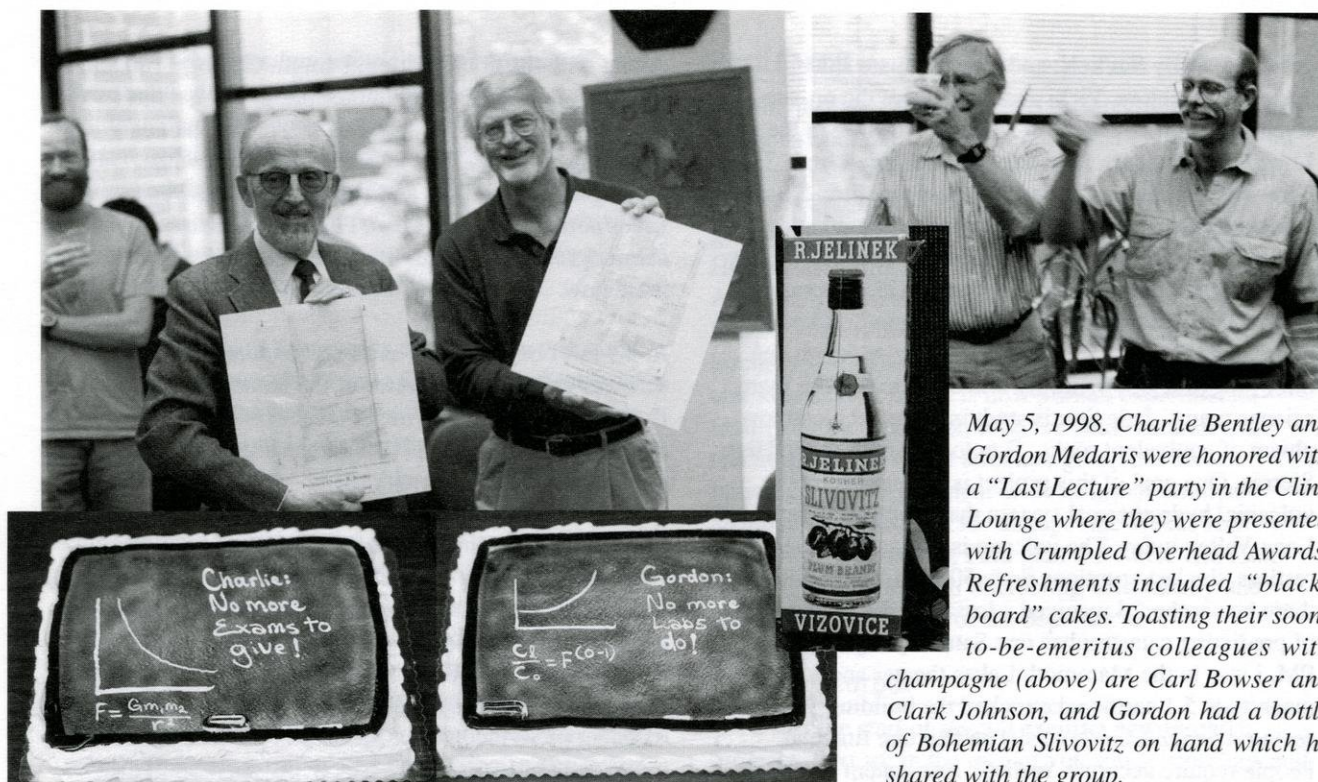 R.JELINEK
R.JELINEK
KOSHER
SLIVOVITZ
PLUM BRANDY
VIZOVICE
Charlie:
No more
Exams to
give!
F = Gm₁m₂
r²
Gordon:
No more
Labs to
do!
Cl
C₀ = F^(D-1)
May 5, 1998. Charlie Bentley an
Gordon Medaris were honored wit
a “Last Lecture” party in the Clin
Lounge where they were presente
with Crumpled Overhead Awards
Refreshments included “black
board” cakes. Toasting their soon
to-be-emeritus colleagues wit
champagne (above) are Carl Bowser an
Clark Johnson, and Gordon had a bottl
of Bohemian Slivovitz on hand which h
shared with the group.